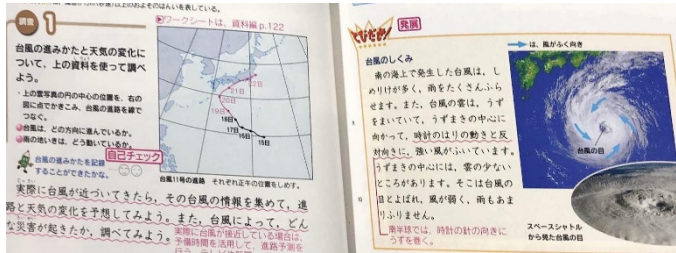 調査 1
▶ワークシートは、資料編p.122
台風の進みかたと天気の変化に
ついて、上の資料を使って調べ
よう。
・上の雲写真の円の中心の位置を、右の
図に点でかきこみ、台風の進路を線で
つなぐ。
台風は、どの方向に進んでいるか。
雨の地いきは、どう動いているか。
自己チェック
台風の進みかたを記録
することができたかな。
22日
21日
20日
19日
18日
17日
16日
15日
台風11号の進路 それぞれ正午の位置をしめす。
実際に台風が近づいてきたら、その台風の情報を集めて、進
路と天気の変化を予想してみよう。また、台風によって、どん
な災害が起きたか、調べてみよう。
実際に台風が接近している場合は、
予備時間を活用して、進路予測を
とびだせ!
発展
台風のしくみ
は、風がふく向き
南の海上で発生した台風は、し
めりけが多く、雨をたくさんふら
せます。また、台風の雲は、うず
をまいていて、うずまきの中心に
向かって、時計のはりの動きと反
対向きに、強い風がふいています。
うずまきの中心には、雲の少ない
ところがあります。そこは台風の
目とよばれ、風が弱く、雨もあま
りふりません。
南半球では、時計の針の向きに
うずを巻く。
台風の目
スペースシャトル
から見た台風の目